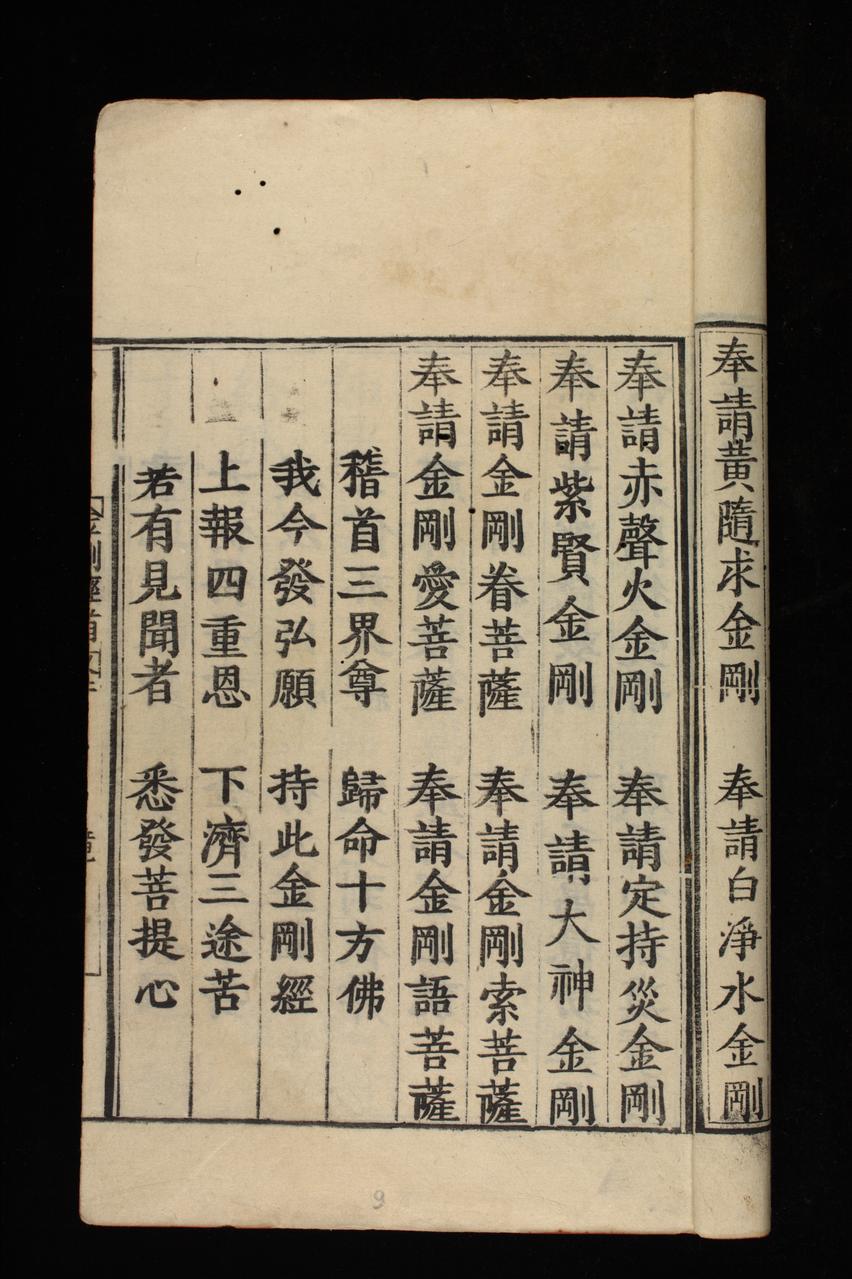 奉請黃隨求金剛　奉請白淨水金剛
奉請赤聲火金剛　奉請定持災金剛
奉請紫賢金剛　奉請大神金剛
奉請金剛眷菩薩　奉請金剛索菩薩
奉請金剛愛菩薩　奉請金剛語菩薩
稽首三界尊　歸命十方佛
我今發弘願　持此金剛經
上報四重恩　下濟三途苦
若有見聞者　悉發菩提心
9